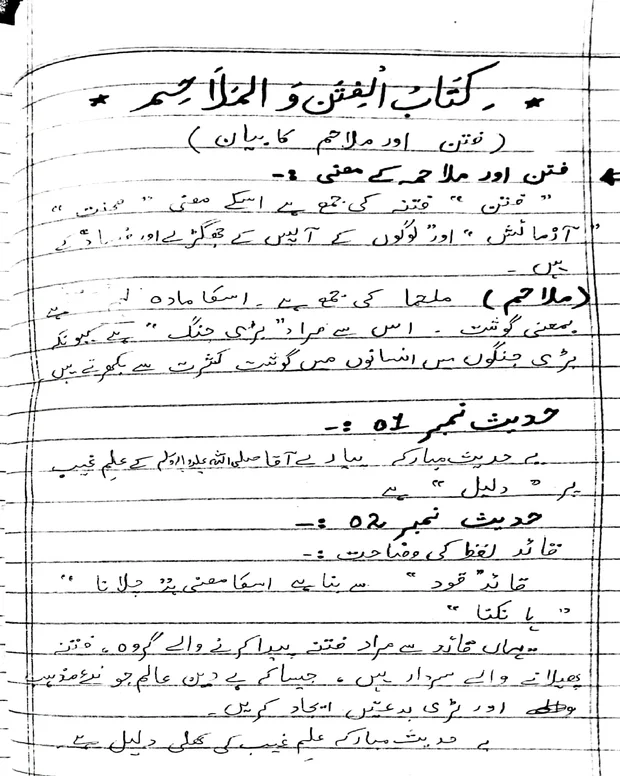 ★ كِتَابُ الْفِتَن وَ المَلَاحِم ★
( فتن اور ملاحم کا بیان )
فتن اور ملاحمہ کے معنی :-
" فتن " فتنہ کی جمع ہے اسکے معنی " محنت "
" آزمائش " اور لوگوں کے آپس کے جھگڑے اور فساد کے
ہیں ۔
(ملاحم) ملحما کی جمع ہے ۔ اسکا مادہ ہے
بمعنی گوشت ۔ اس سے مراد " بڑی جنگ " ہے کیونکہ
بڑی جنگوں میں انسانوں میں گوشت کثرت سے بکھرتے ہیں
حدیث نمبر 01 :-
یہ حدیث مبارکہ پیارے آقا صلی اللہ علیہ وآلہ وسلم کے علم غیب
پر " دلیل " ہے
حدیث نمبر 02 :-
قائد لفظ کی وضاحت :-
قائد " قود " سے بنا ہے اسکا معنی ہے چلانا "
" ہانکنا "
یہاں قائد سے مراد فتنے پیدا کرنے والے گروہ ، فتنہ
پھیلانے والے سردار ہیں ، جیسا کہ بے دین عالم جو نئے مذہب
اور بڑی بدعتیں ایجاد کریں ۔
یہ حدیث مبارکہ علم غیب کی کھلی دلیل ہے ۔